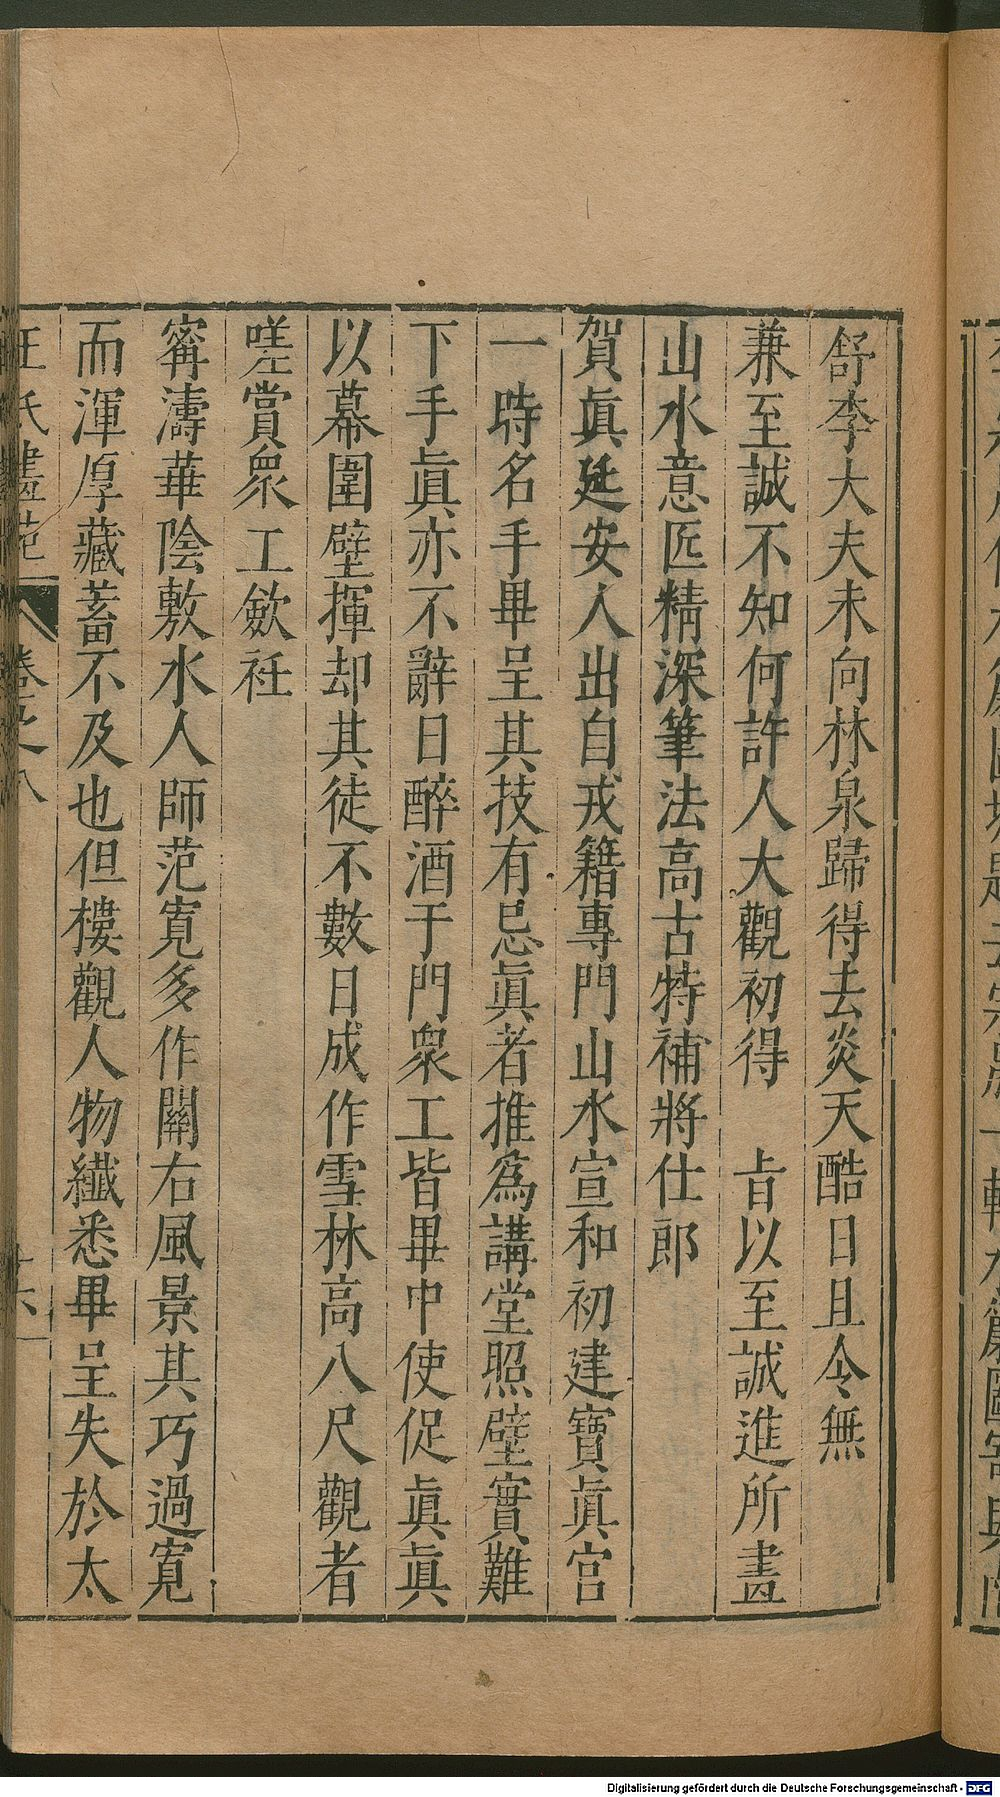 舒李大夫未向林泉歸得去炎天酷日且令無
兼至誠不知何許人大觀初得　㫖以至誠進所畫
山水意匠精深筆法高古特補將仕郎
賀眞延安人出自戎籍專門山水宣和初建寶眞宮
一時名手畢呈其技有忌眞者推爲講堂照壁實難
下手眞亦不辭日醉酒于門衆工皆畢中使促眞眞
以幕圍壁揮却其徒不數日成作雪林高八尺觀者
嗟賞衆工歛衽
寗濤華陰敷水人師范寛多作關右風景其巧過寛
而渾厚藏蓄不及也但樓觀人物纖悉畢呈失於太
王氏畫苑　卷之八　十六
Digitalisierung gefördert durch die Deutsche Forschungsgemeinschaft - DFG